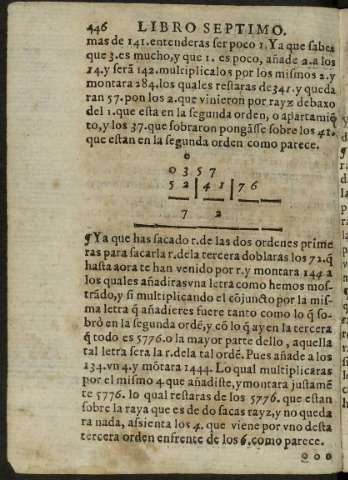 446 LIBRO SEPTIMO.
mas de 141. entenderas ser poco 1. Ya que sabes
que 3. es mucho, y que 1. es poco, añade 2. a los
14. y serã 142. multiplicalos por los mismos 2. y
montara 284. los quales restaras de 341. y queda
ran 57. pon los 2. que vinieron por rayz debaxo
del 1. que esta en la segunda orden, o apartamiẽ
to, y los 37. que sobraron pongãsse sobre los 41.
que estan en la segunda orden como parece.
0
0 3 5 7
5 2 | 4 1 | 7 6
7 2
¶Ya que has sacado r. de las dos ordenes prime
ras para sacarla r. dela tercera doblaras los 72. q̃
hasta aora te han venido por r. y montara 144 a
los quales añadiras vna letra como hemos mos-
trãdo, y si multiplicando el cõjuncto por la mis-
ma letra q̃ añadieres fuere tanto como lo q̃ so-
brò en la segunda ordẽ, y cõ lo q̃ ay en la tercera
q̃ todo es 5776. o la mayor parte dello, aquella
tal letra sera la r. dela tal ordẽ. Pues añade a los
134. vn 4. y mõtara 1444. Lo qual multiplicaras
por el mismo 4 que añadiste, y montara justamẽ
te 5776. lo qual restaras de los 5776. que estan
sobre la raya que es de do sacas rayz, y no queda
ra nada, assienta los 4. que viene por vno desta
tercera orden enfrente de los 6. como parece.
0 0 0